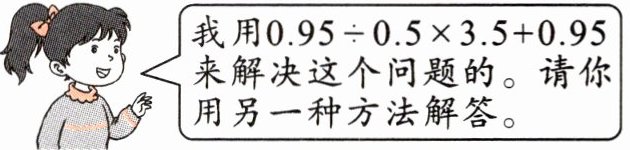 我用0.95÷0.5×3.5+0.95
来解决这个问题的。请你
用另一种方法解答。